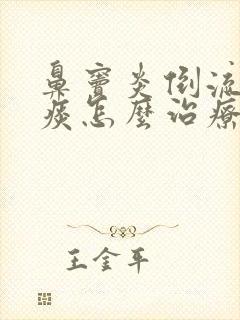 鼻窦炎倒流
痰怎麼治療
王金平